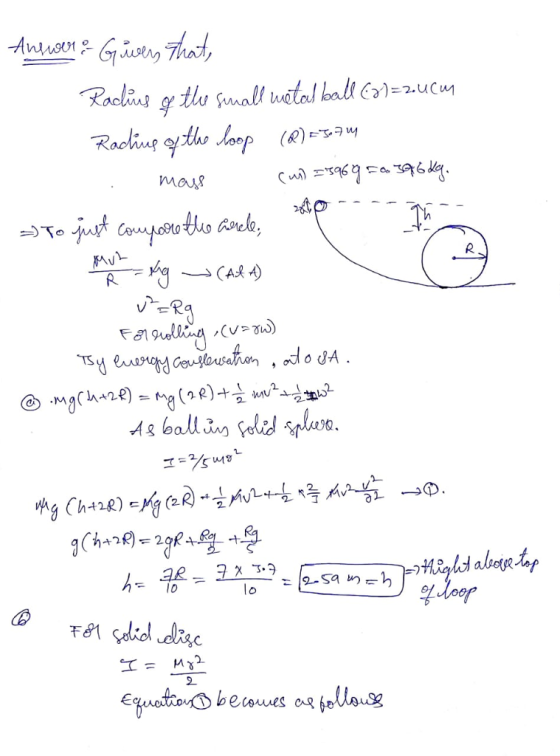 Answer :- Given that,
Radius of the small metal ball (r) = 2.4 cm
Radius of the loop (R) = 3.7 m
mass (m) = 396 g = 0.396 kg.
2r
h
R
⇒ To just compare the circle,
Mv²/R = Mg → (At A)
v² = Rg
For rolling, (v = rω)
By energy conservation, at O & A.
ⓐ mg(h+2R) = mg(2R) + 1/2 mv² + 1/2 Iω²
As ball is solid sphere.
I = 2/5 mr²
Mg (h+2R) = Mg(2R) + 1/2 Mv² + 1/2 × 2/5 Mr² v²/r² → ①.
g(h+2R) = 2gR + Rg/2 + Rg/5
h = 7R/10 = 7 × 3.7/10 = 2.59 m = h ⇒ hight above top
of loop
ⓑ
For solid disc
I = Mr²/2
Equation ① becomes as follows